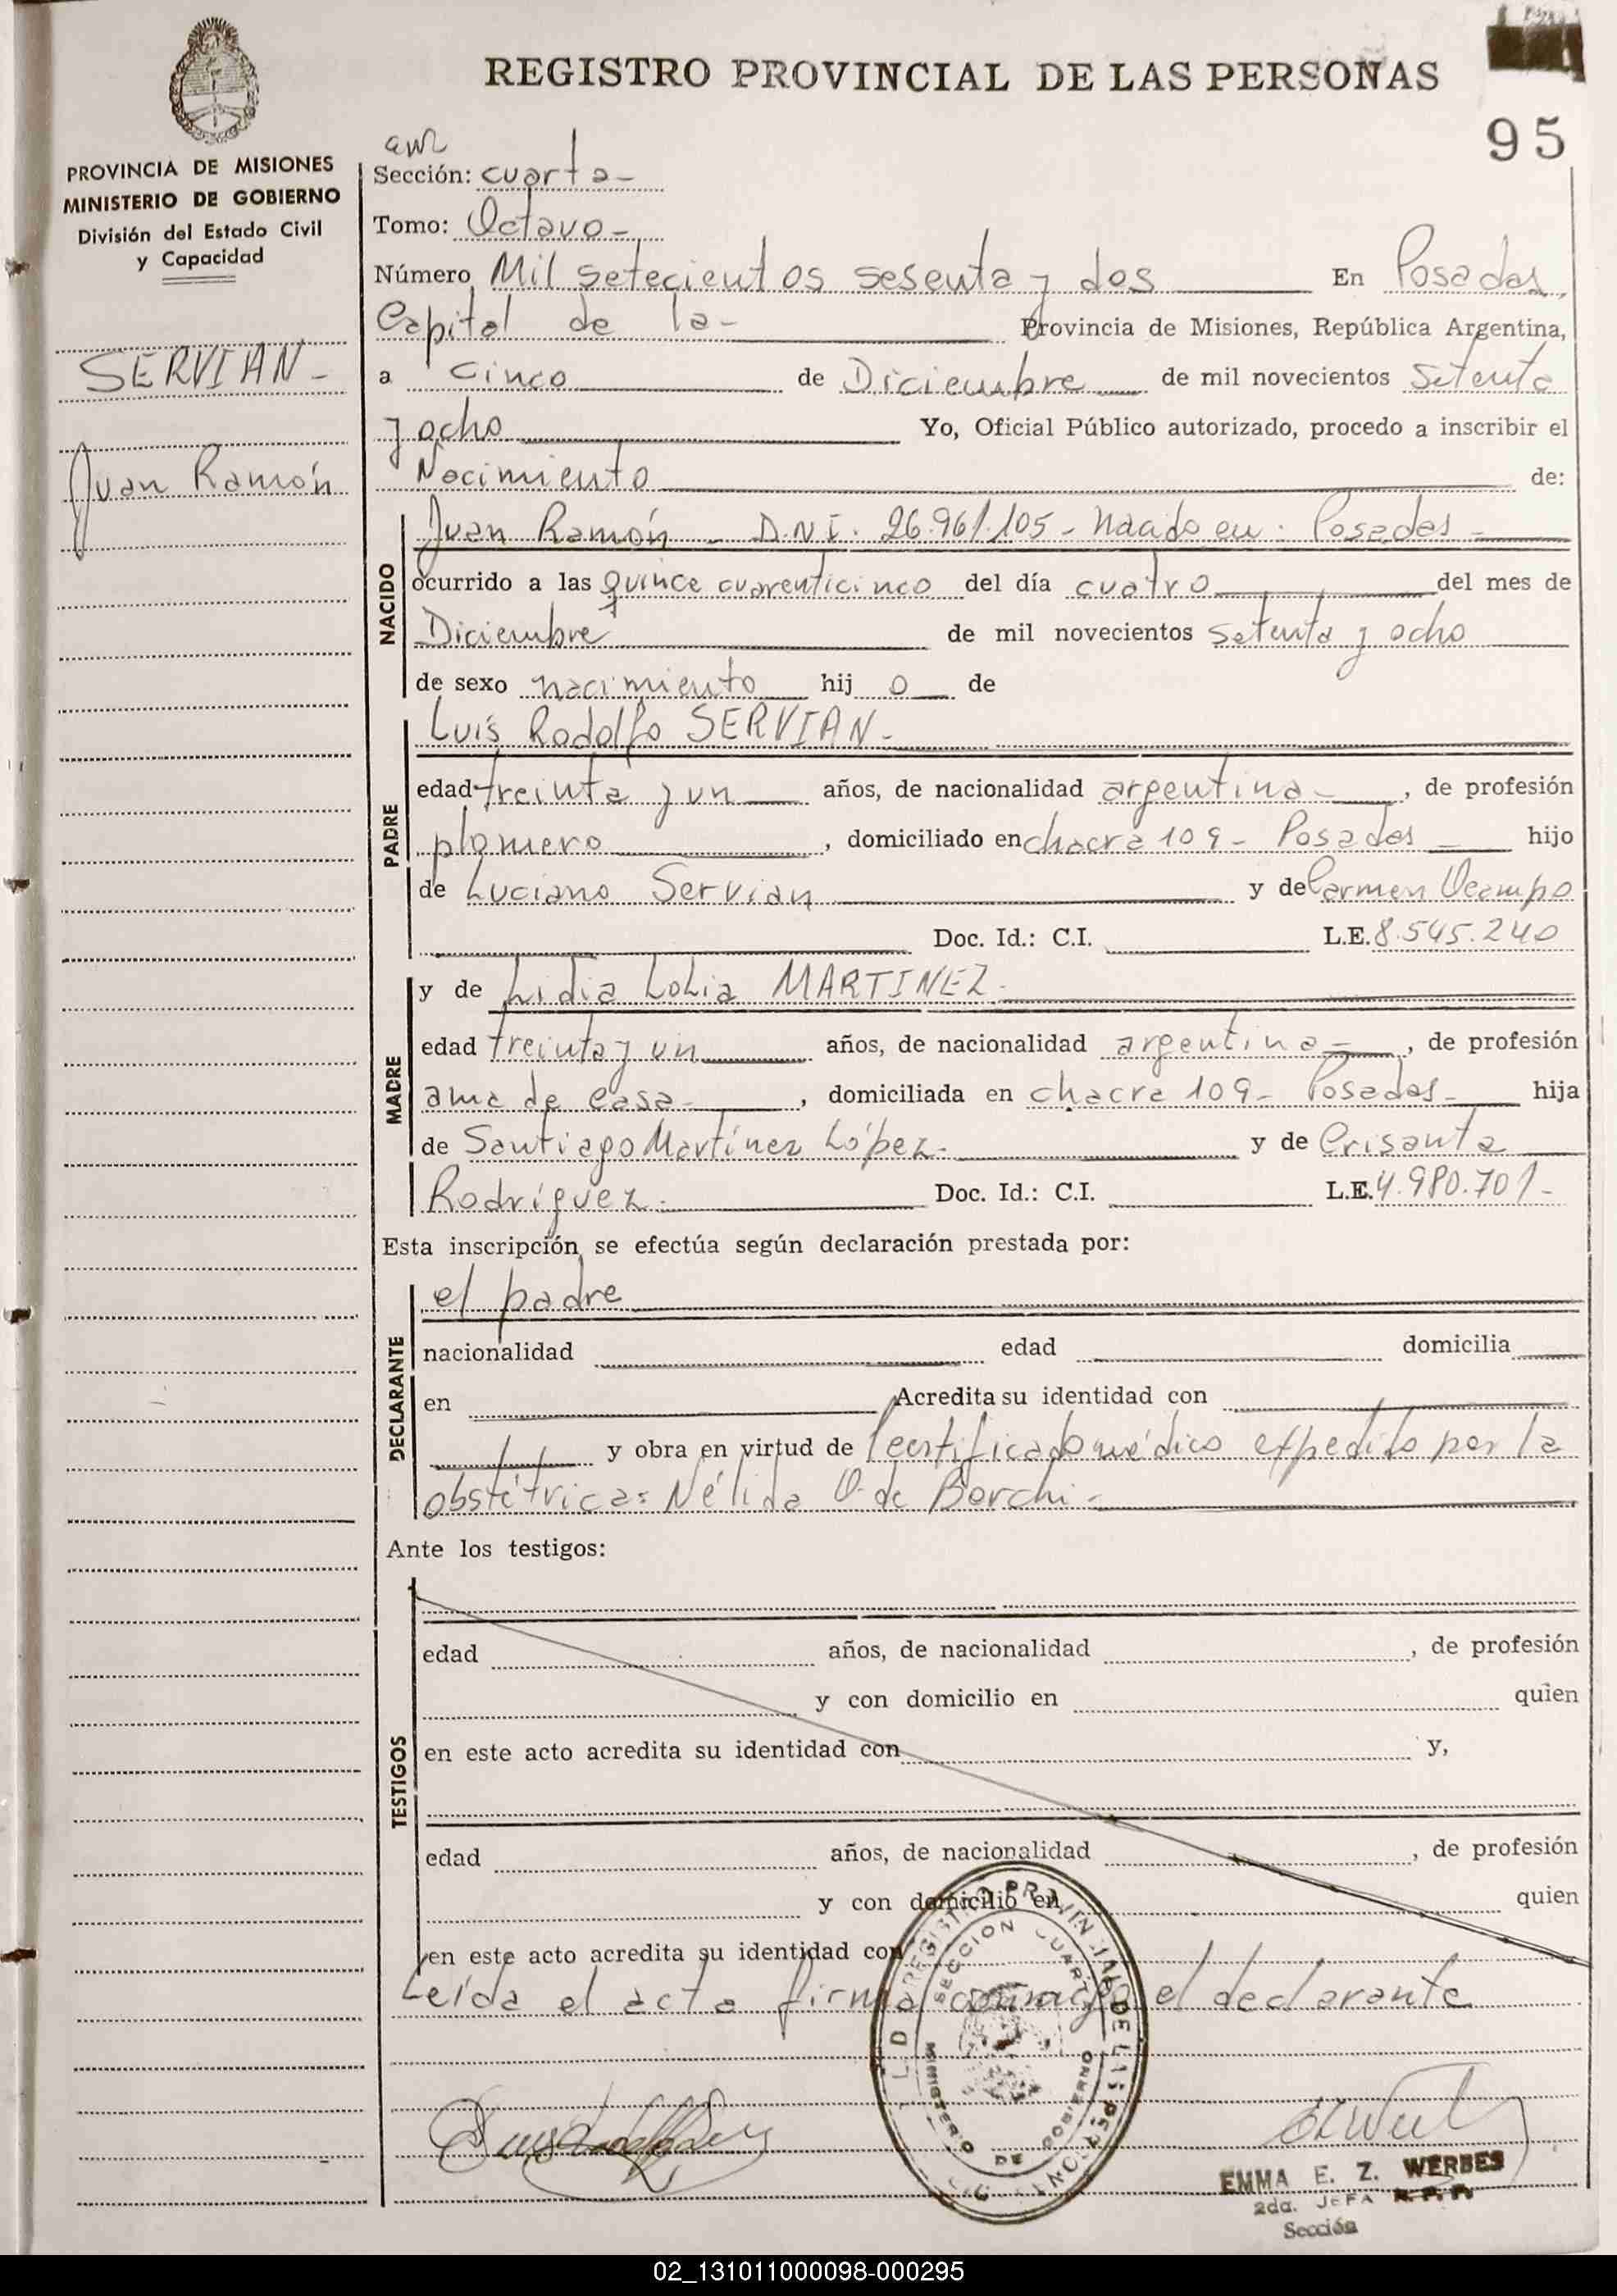 REGISTRO PROVINCIAL DE LAS PERSONAS
95
PROVINCIA DE MISIONES
MINISTERIO DE GOBIERNO
División del Estado Civil
y Capacidad
SERVIAN -
Juan Ramón
Sección: cuarta -
Tomo: Octavo -
Número Mil setecientos sesenta y dos En Posadas,
Capital de la - Provincia de Misiones, República Argentina,
a cinco de Diciembre de mil novecientos setenta
y ocho Yo, Oficial Público autorizado, procedo a inscribir el
Nacimiento de:
NACIDO
Juan Ramón - D.N.I. 26.961.105 - Nacido en: Posadas -
ocurrido a las quince cuarenticinco del día cuatro del mes de
Diciembre de mil novecientos setenta y ocho
de sexo nacimiento hij o de
PADRE
Luis Rodolfo SERVIAN -
edad treinta y un años, de nacionalidad argentina -, de profesión
plomero, domiciliado en chacra 109 - Posadas hijo
de Luciano Servian y de Carmen Ocampo
Doc. Id.: C.I. L.E. 8.545.240
MADRE
y de Lidia Lolia MARTINEZ -
edad treinta y un años, de nacionalidad argentina -, de profesión
ama de casa -, domiciliada en chacra 109 - Posadas - hija
de Santiago Martínez López - y de Crisanta
Rodríguez - Doc. Id.: C.I. L.E. 4.980.701 -
Esta inscripción se efectúa según declaración prestada por:
DECLARANTE
el padre
nacionalidad edad domicilia
en Acredita su identidad con
y obra en virtud de Certificado médico expedido por la
obstétrica: Nélida O. de Borchi -
Ante los testigos:
TESTIGOS
edad años, de nacionalidad , de profesión
y con domicilio en quien
en este acto acredita su identidad con y,
edad años, de nacionalidad , de profesión
y con domicilio en quien
en este acto acredita su identidad con
Leída el acta firma conmigo el declarante
REGISTRO PROVINCIAL DE LAS PERSONAS
SECCION CUARTA
MINISTERIO DE GOBIERNO
EMMA E. Z. WERBES
2da. JEFA R.P.P.
Sección
02_131011000098-000295